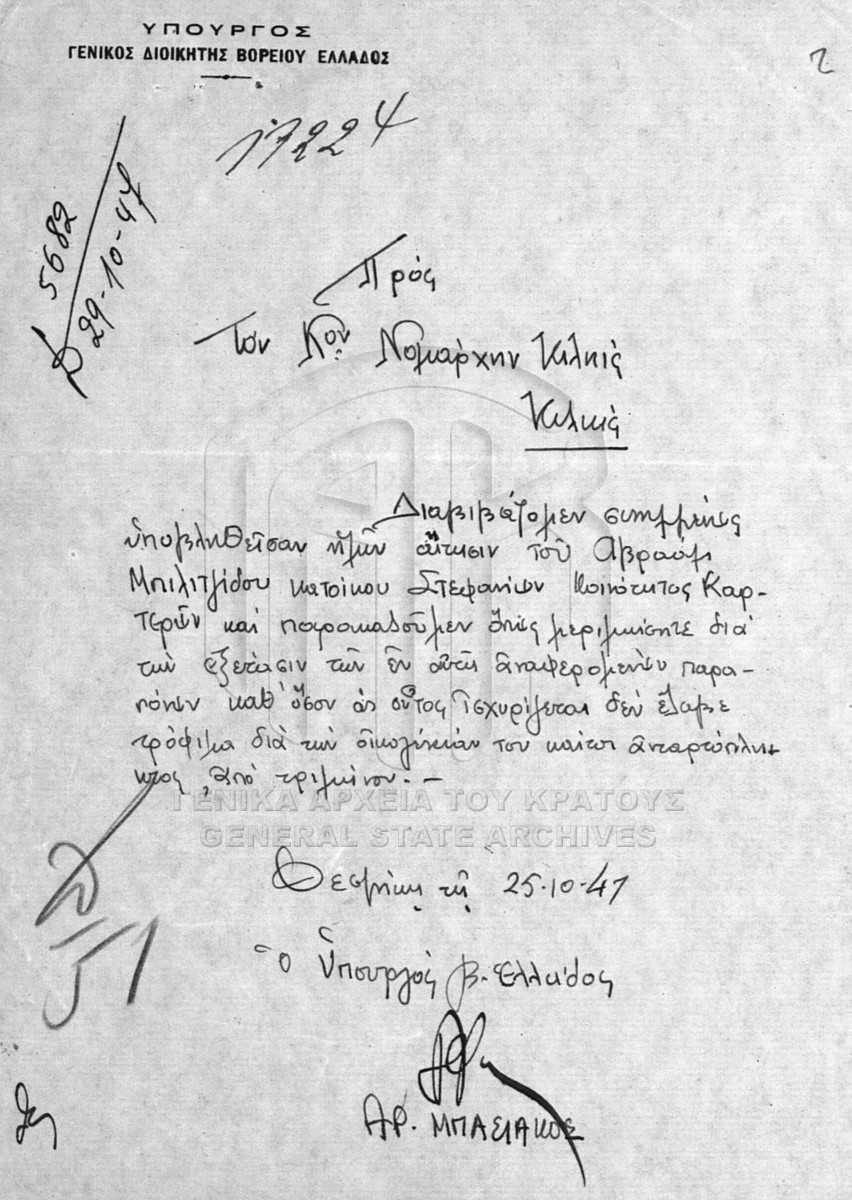 ΥΠΟΥΡΓΟΣ
ΓΕΝΙΚΟΣ ΔΙΟΙΚΗΤΗΣ ΒΟΡΕΙΟΥ ΕΛΛΑΔΟΣ
2
17224
5682
29-10-47
Πρός
Τον Κον Νομάρχην Κιλκίς
Κιλκίς
Διαβιβάζομεν συνημμένως
ὑποβληθεῖσαν ἡμῖν αἴτησιν τοῦ Αβραάμ
Μπιλιτζίδου κατοίκου Στεφανίων Κοινότητος Καρ-
τερῶν καί παρακαλοῦμεν ὅπως μεριμνήσητε διά
τήν ἐξέτασιν τῶν ἐν αὐτῇ ἀναφερομένων παρα-
πόνων καθ' ὅσον ὡς οὗτος ἰσχυρίζεται δέν ἔλαβε
τρόφιμα διά τήν οἰκογένειάν του καίτοι ἀνταρτόπλη-
κτος ἀπό τριμήνου. -
ΓΕΝΙΚΑ ΑΡΧΕΙΑ ΤΟΥ ΚΡΑΤΟΥΣ
GENERAL STATE ARCHIVES
Θεσ/νίκη τῇ 25-10-47
Ὁ Ὑπουργός Β. Ἑλλάδος
ΑΡ. ΜΠΑΣΙΑΚΟΣ